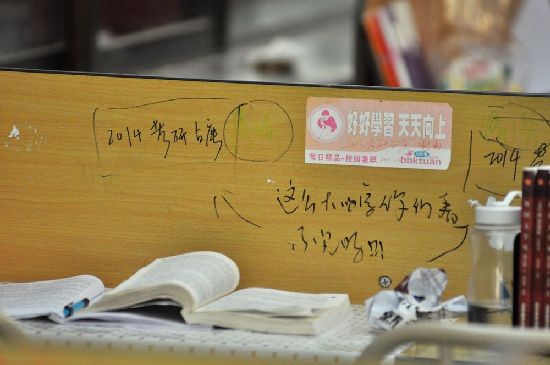 2014考研占座
好好學習 天天向上
每日精品+校园兼职
bbktuan
2014考
这么大的字你们看
不见吗!!!